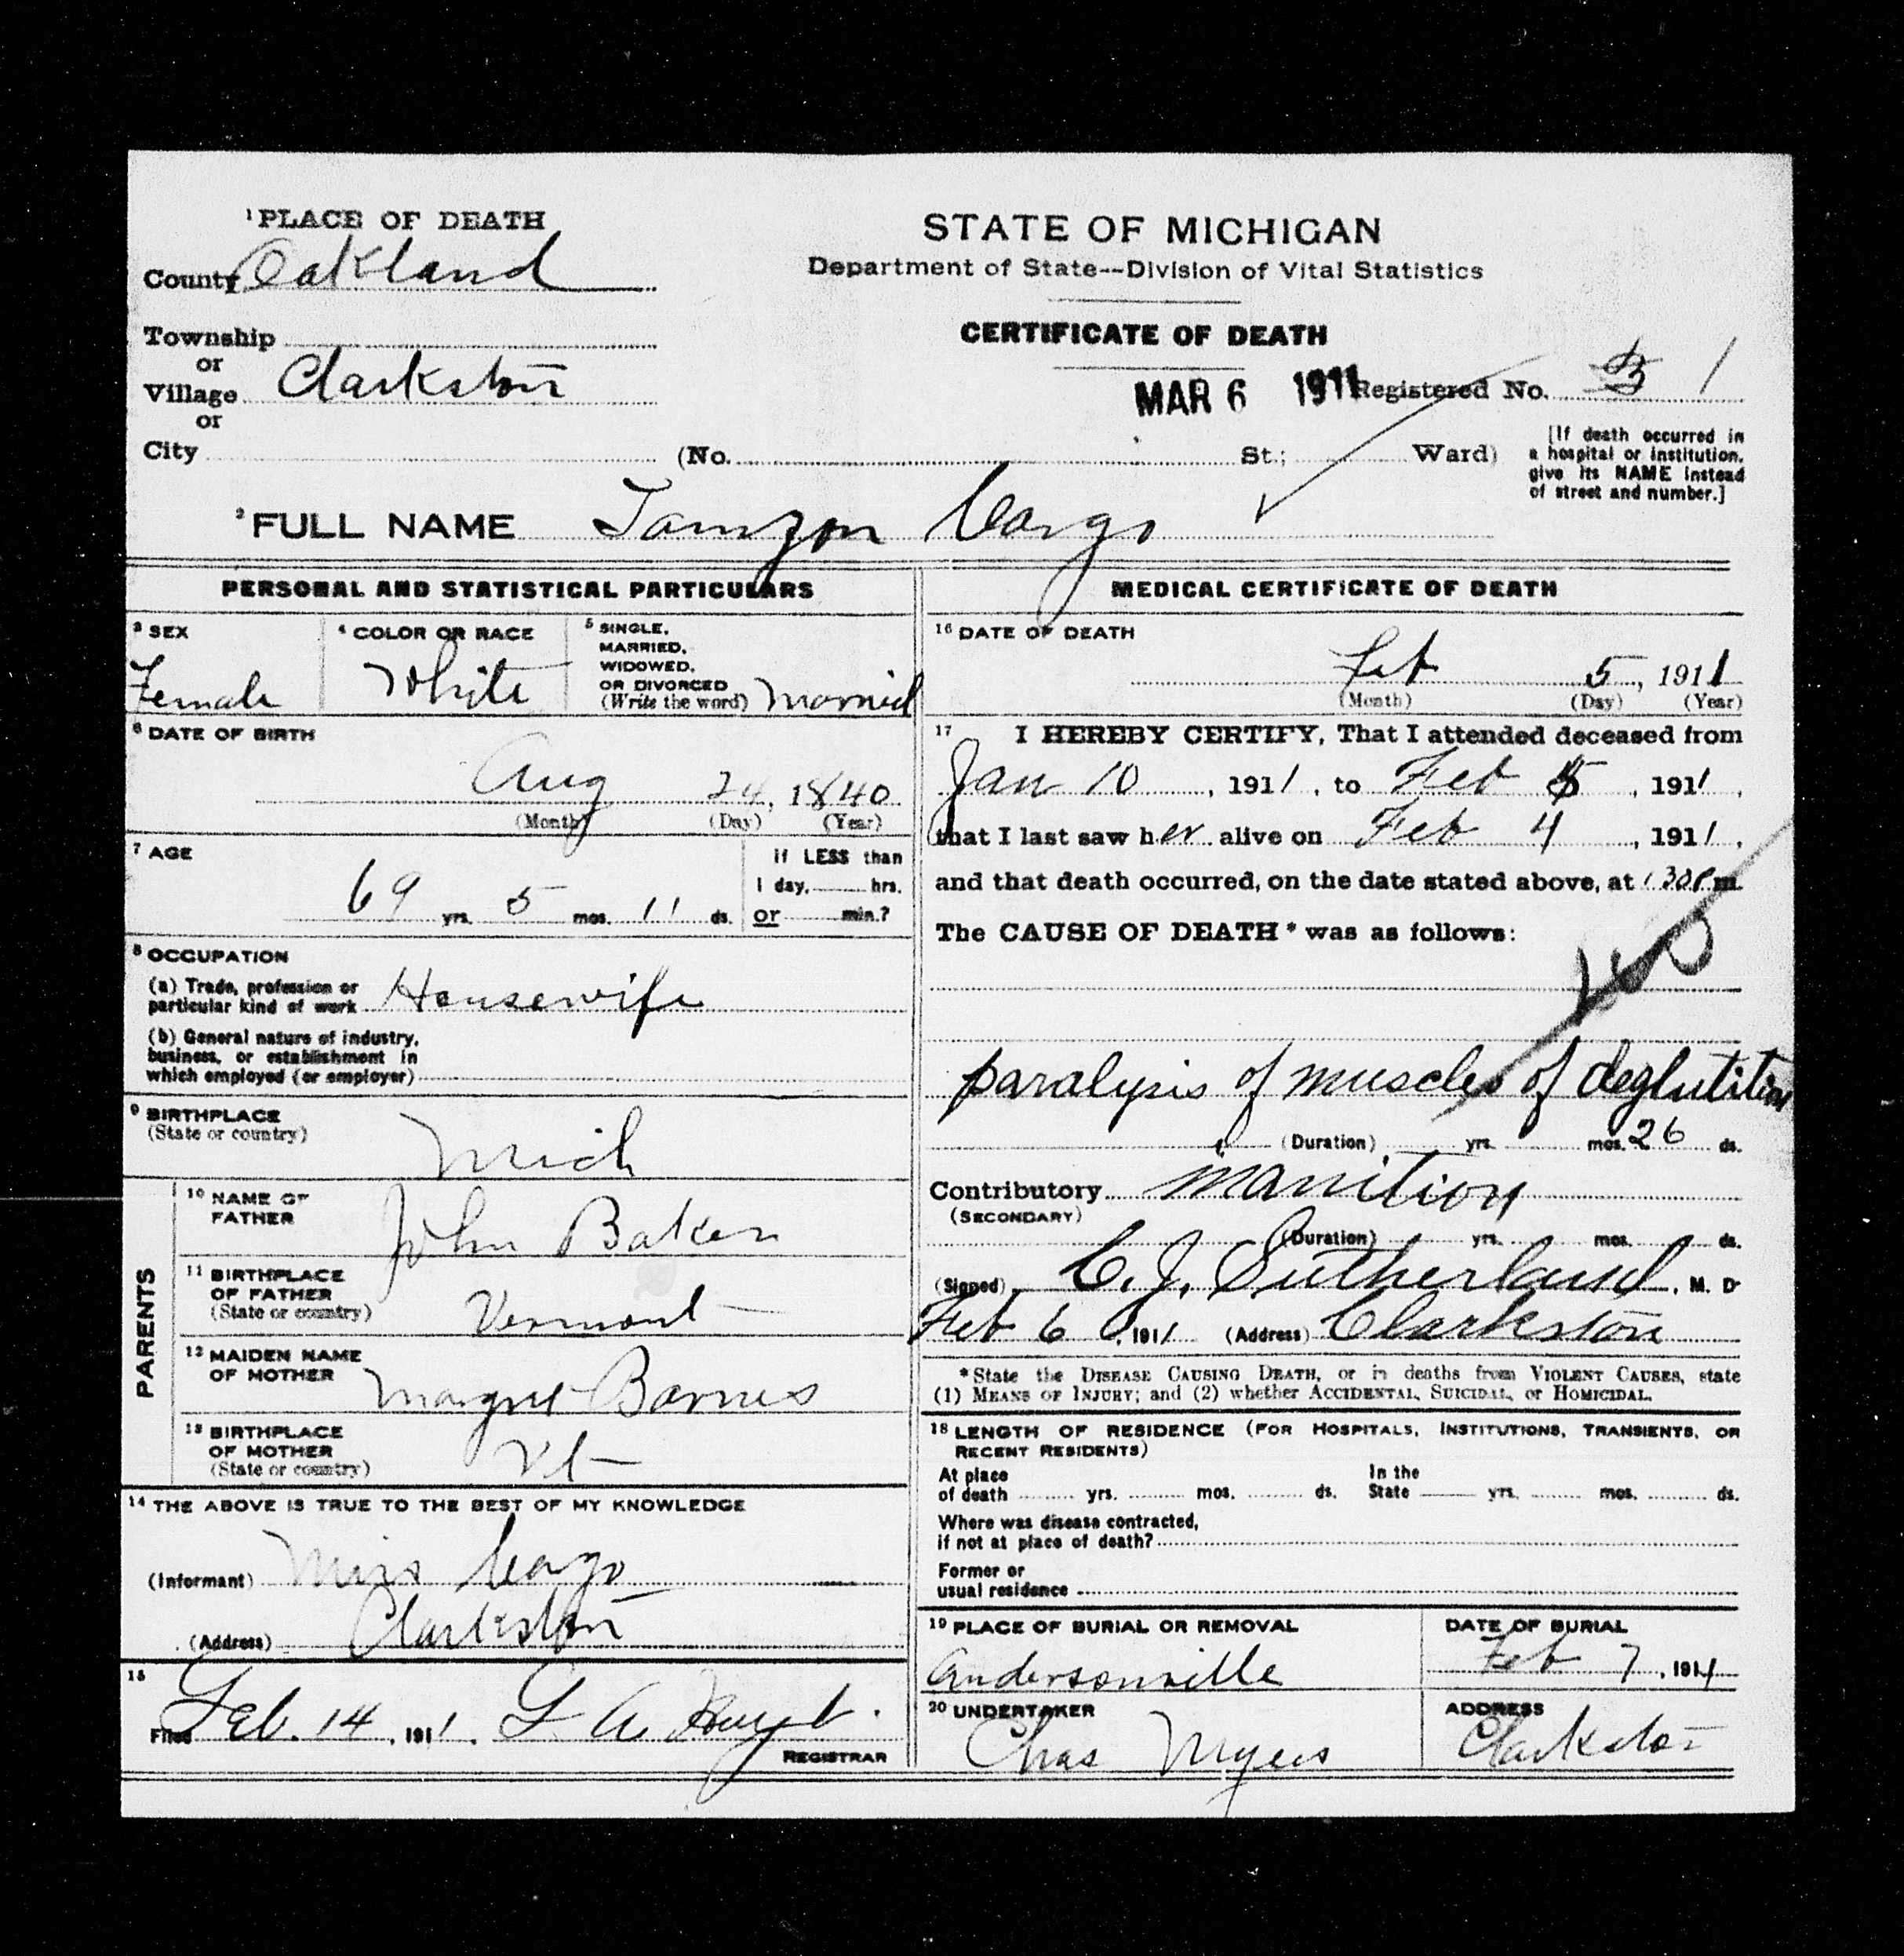 ¹PLACE OF DEATH
County Oakland
Township
or
Village Clarkston
or
City (No. St.; Ward)
STATE OF MICHIGAN
Department of State--Division of Vital Statistics
CERTIFICATE OF DEATH
MAR 6 1911 Registered No. 1
[If death occurred in
a hospital or institution,
give its NAME instead
of street and number.]
²FULL NAME Tamzon Cargo
PERSONAL AND STATISTICAL PARTICULARS
³SEX
Female
⁴COLOR OR RACE
White
⁵SINGLE,
MARRIED,
WIDOWED,
OR DIVORCED
(Write the word) Married
⁶DATE OF BIRTH
Aug 24, 1840
(Month) (Day) (Year)
⁷AGE
69 yrs. 5 mos. 11 ds.
If LESS than
1 day, hrs.
or min.?
⁸OCCUPATION
(a) Trade, profession or
particular kind of work Housewife
(b) General nature of industry,
business, or establishment in
which employed (or employer)
⁹BIRTHPLACE
(State or country)
Mich
PARENTS
¹⁰NAME OF
FATHER
John Baker
¹¹BIRTHPLACE
OF FATHER
(State or country)
Vermont
¹²MAIDEN NAME
OF MOTHER
Barnes
¹³BIRTHPLACE
OF MOTHER
(State or country)
Vt
¹⁴THE ABOVE IS TRUE TO THE BEST OF MY KNOWLEDGE
(Informant) Cargo
(Address) Clarkston
¹⁵
Filed Feb. 14, 1911.
REGISTRAR
MEDICAL CERTIFICATE OF DEATH
¹⁶DATE OF DEATH
Feb 5, 1911
(Month) (Day) (Year)
¹⁷ I HEREBY CERTIFY, That I attended deceased from
Jan 10, 1911, to Feb 5, 1911,
that I last saw her alive on Feb 4, 1911,
and that death occurred, on the date stated above, at 1 30 P m.
The CAUSE OF DEATH* was as follows:
paralysis of muscles of deglutition
(Duration) yrs. mos. 26 ds.
Contributory inanition
(SECONDARY)
(Duration) yrs. mos. ds.
(Signed) C. J. Sutherland, M. D
Feb 6, 1911 (Address) Clarkston
*State the DISEASE CAUSING DEATH, or in deaths from VIOLENT CAUSES, state
(1) MEANS OF INJURY; and (2) whether ACCIDENTAL, SUICIDAL, or HOMICIDAL.
¹⁸LENGTH OF RESIDENCE (FOR HOSPITALS, INSTITUTIONS, TRANSIENTS, OR
RECENT RESIDENTS)
At place
of death yrs. mos. ds.
In the
State yrs. mos. ds.
Where was disease contracted,
if not at place of death?
Former or
usual residence
¹⁹PLACE OF BURIAL OR REMOVAL
Andersonville
DATE OF BURIAL
Feb 7, 1911
²⁰UNDERTAKER
Chas Myers
ADDRESS
Clarkston